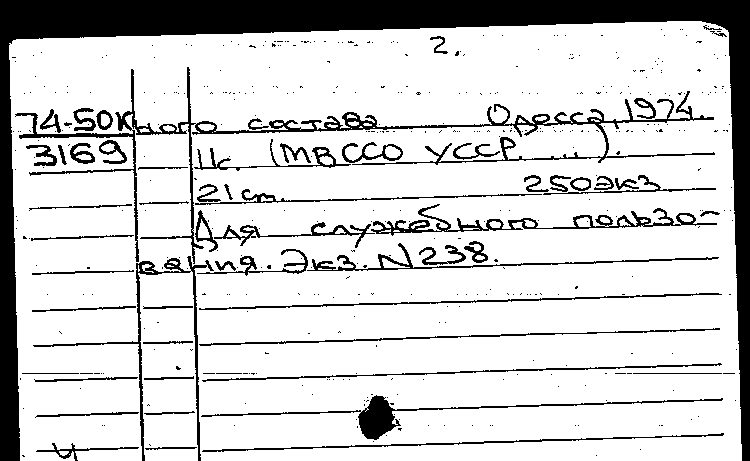 2.
74-50к ного состава Одесса, 1974.
3169 11с. (МВССО УССР. ...).
21 cm. 250экз
Для служебного пользо-
вания. Экз. N 238.